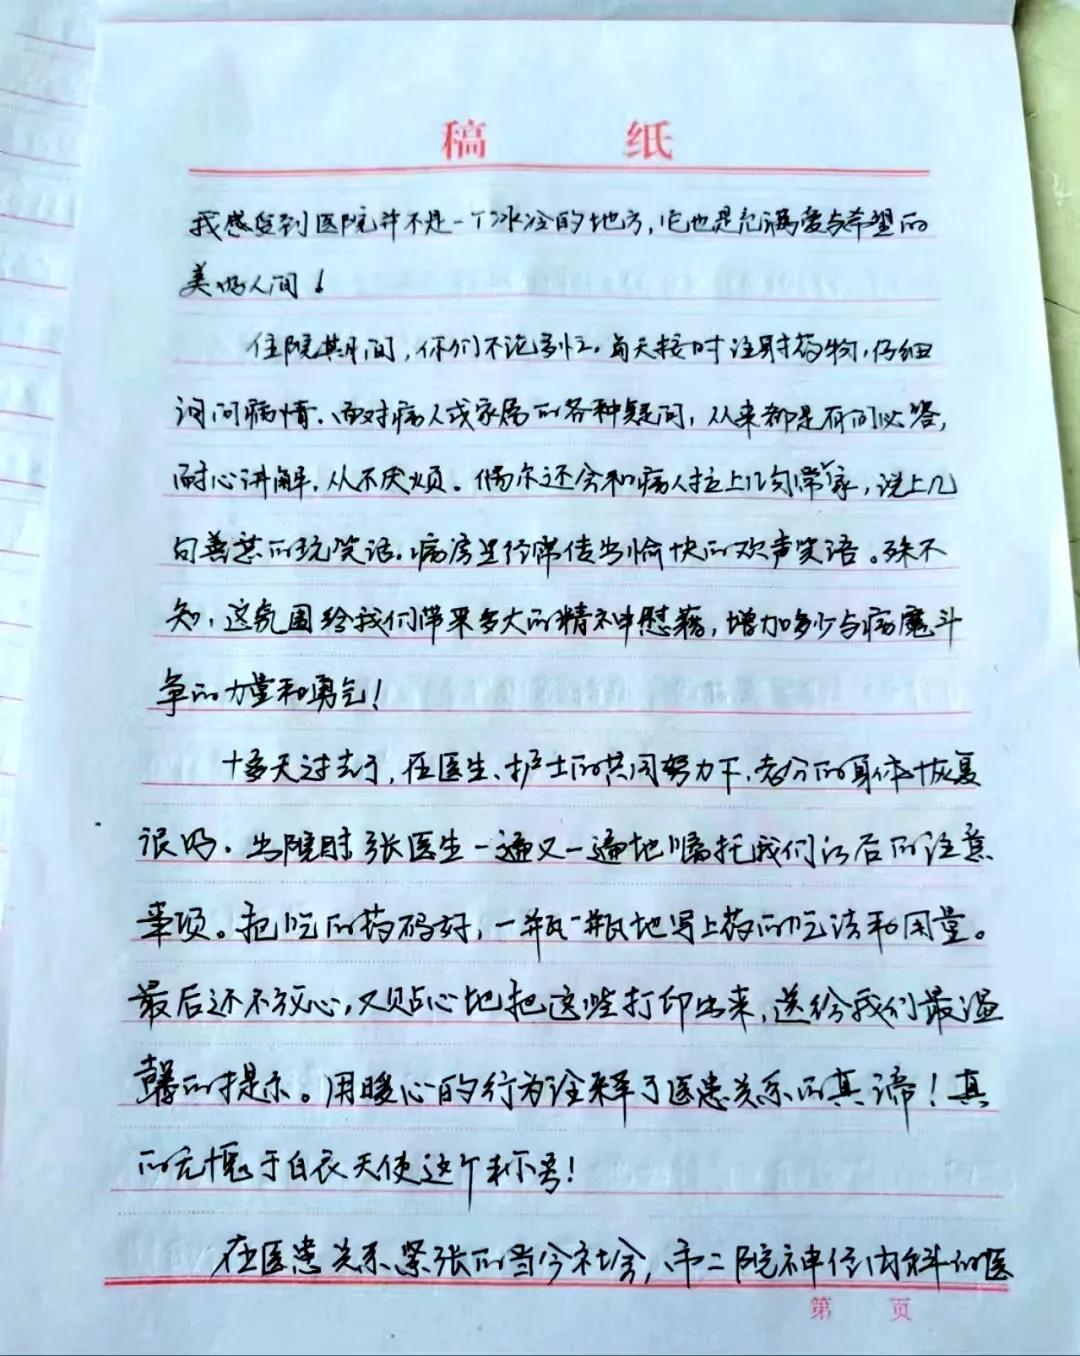 稿 纸
我感受到医院并不是一个冰冷的地方，它也是充满爱与希望的
美好人间！
住院期间，你们不论多忙，每天按时注射药物，仔细
询问病情。面对病人或家属的各种疑问，从来都是有问必答，
耐心讲解，从不厌烦。偶尔还会和病人拉上几句常家，说上几
句善意的玩笑话，病房里经常传出愉快的欢声笑语。殊不
知，这氛围给我们带来多大的精神慰藉，增加多少与病魔斗
争的力量和勇气！
十多天过去了，在医生、护士的共同努力下，老爷的身体恢复
很好。出院时张医生一遍又一遍地嘱托我们以后的注意
事项。把吃的药码好，一瓶一瓶地写上药的吃法和用量。
最后还不放心，又贴心地把这些打印出来，送给我们最温
馨的提示。用暖心的行为诠释了医患关系的真谛！真
的无愧于白衣天使这个称号！
在医患关系紧张的当今社会，市二院神经内科的医
第 页